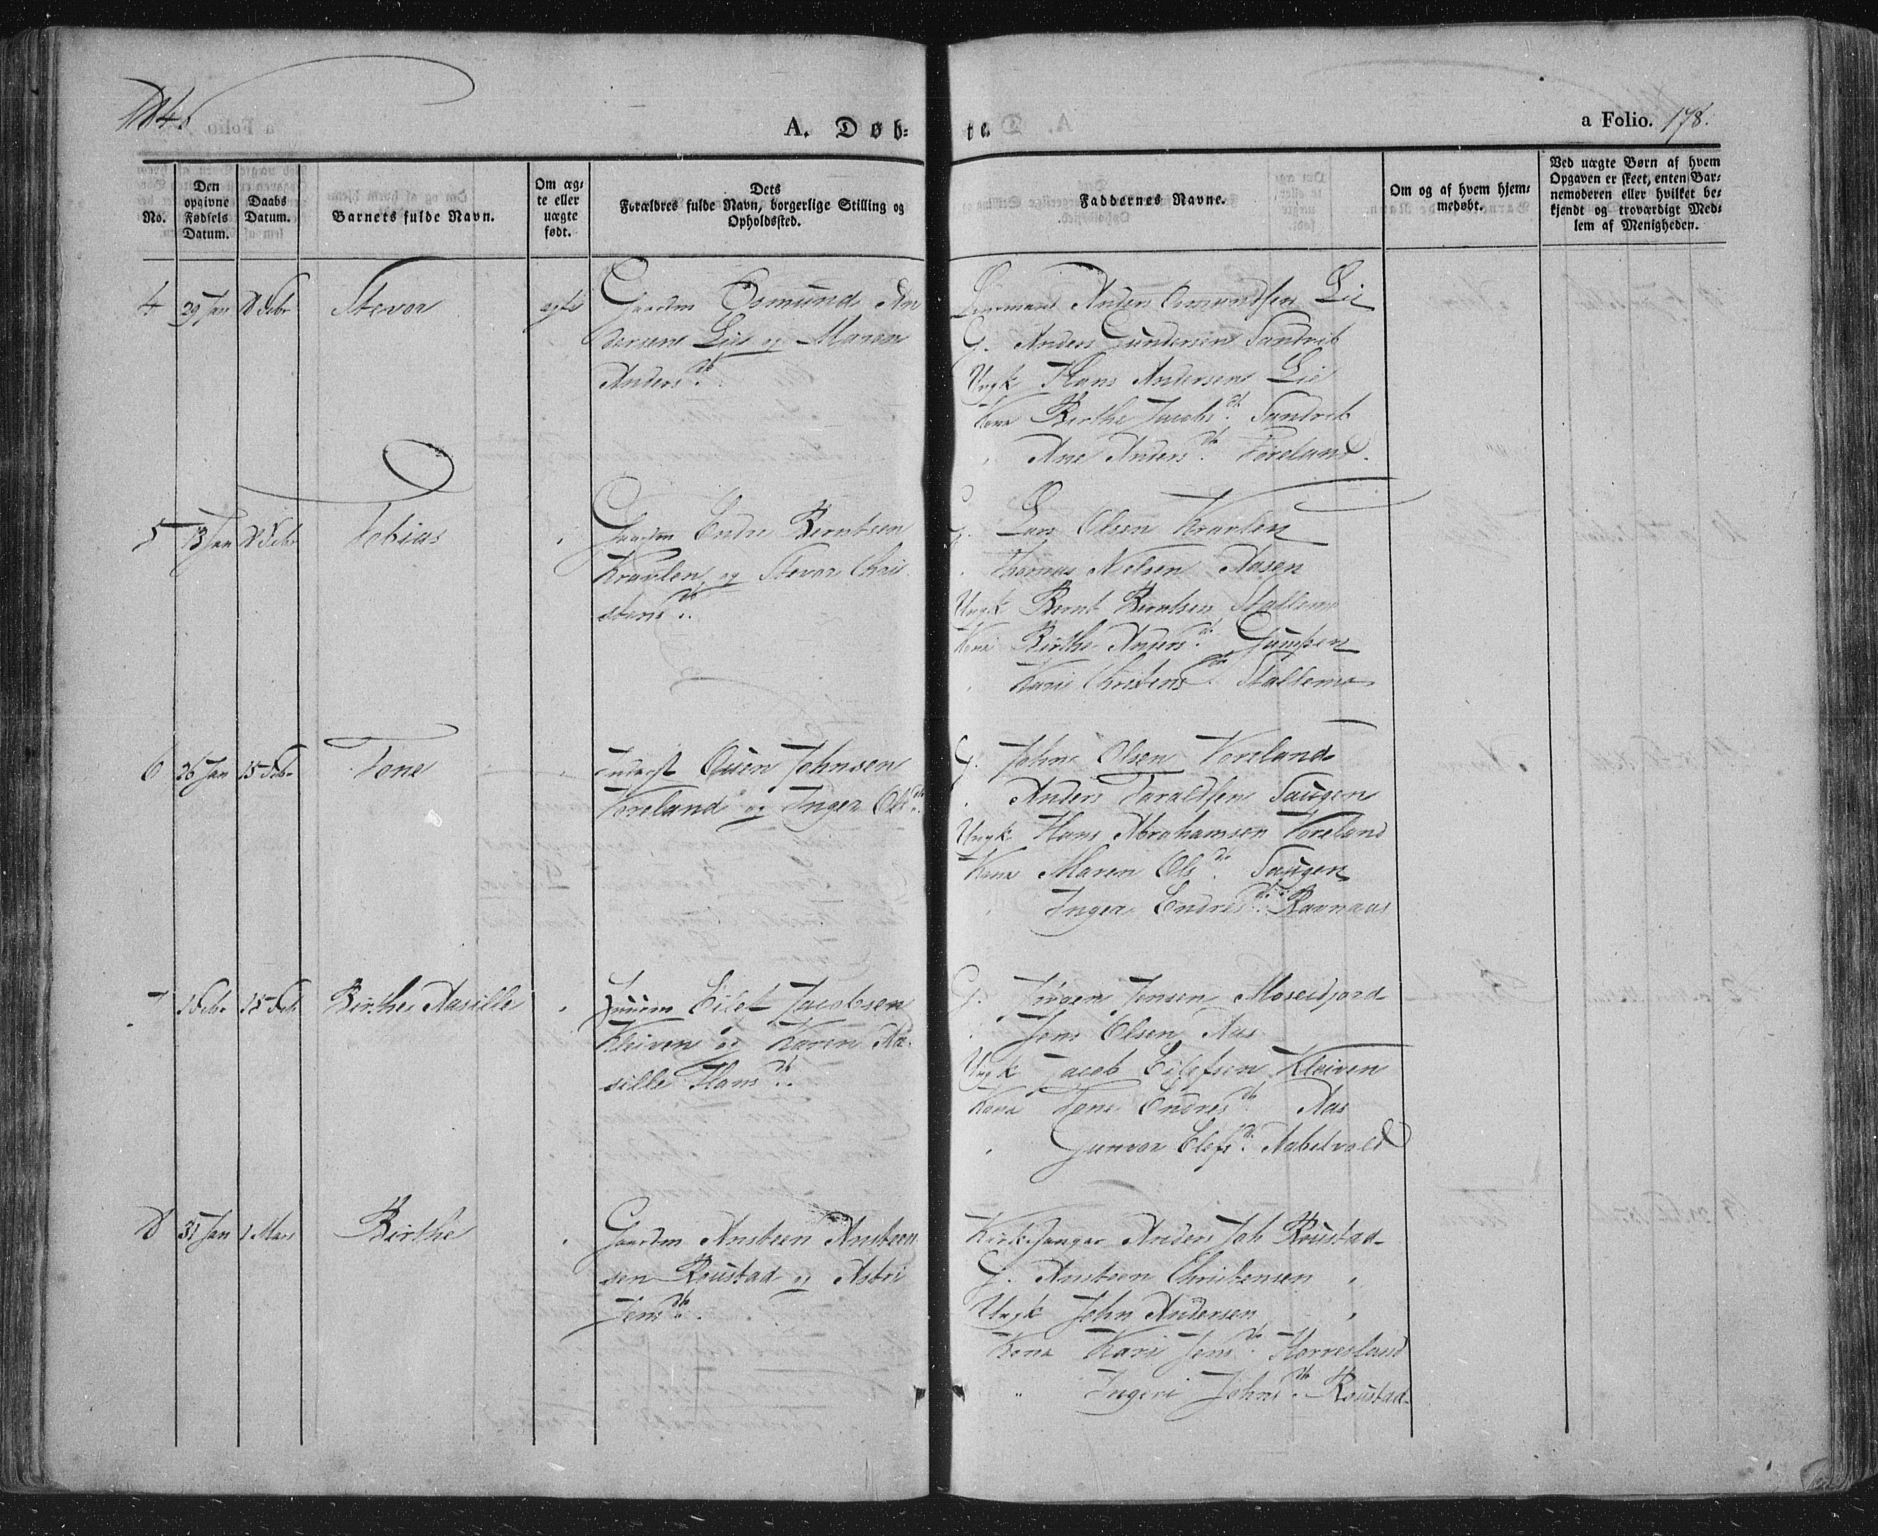 1846
A. Døb-
te.
a Folio. 178.
No.
Den opgivne Fødsels Datum.
Daabs Datum.
Barnets fulde Navn.
Om ægte eller uægte født.
Dets Forældres fulde Navn, borgerlige Stilling og Opholdssted.
Faddernes Navne.
Om og af hvem hjemmedøbt.
Ved uægte Børn af hvem Opgaven er skeet, enten Barnemoderen eller hvilket bekjendt og troværdigt Medlem af Menigheden.
4 29 Jan 8 Febr Stevor ægte Gaardm Osmund An
dersen Lie og Maren
Andersd.
Anders Osmundsen Lie
G. Anders Gundersen Sandvik
Ungk Hans Andersen Lie
Kone Birthe Jacobsd. Sandvik
" Ane Andersd. Foreland.
5 13 Jan 8 Febr Tobias " Gaardm Endre Berntsen
Kraulen og Stevor Chri
stensd.
G. Lars Olsen Kraulen
" Thomas Nielsen Aasen
Ungk Bernt Berntsen Stallemo
Kone Birthe Andersd.
" Kari Christensd. Stallemo
6 26 Jan 15 Feb Tone " Inderst Ouen Johnsen
Voreland og Inger Olsd.
G. John Olsen Voreland
" Anders Taraldsen Taugen
Ungk Hans Abrahamsen Voreland
Kone Maren Olsd. Taugen
" Inger Endresd. Ravnaas
7 1 Febr 15 Feb Birthe Aasille " Eilef Jacobsen
Kleiven og Karen Aa-
sille Hansd.
G. Jørgen Jensen Moseidjord
" Jens Olsen Aas
Ungk Jacob Eilefsen Kleiven
Kone Tone Endresd. Aas
" Gunvor Elefsd. Aabelvold
8 31 Jan 1 Mars Birthe " Gaardm Ansteen Ansteen
sen Roustad og Astri
Jensd.
Kirkesanger Anders Joh Roustad
G. Ansteen Christensen "
Ungk John Andersen "
Kone Kari Jensd. Horresland
" Ingeri Johnsd. Roustad